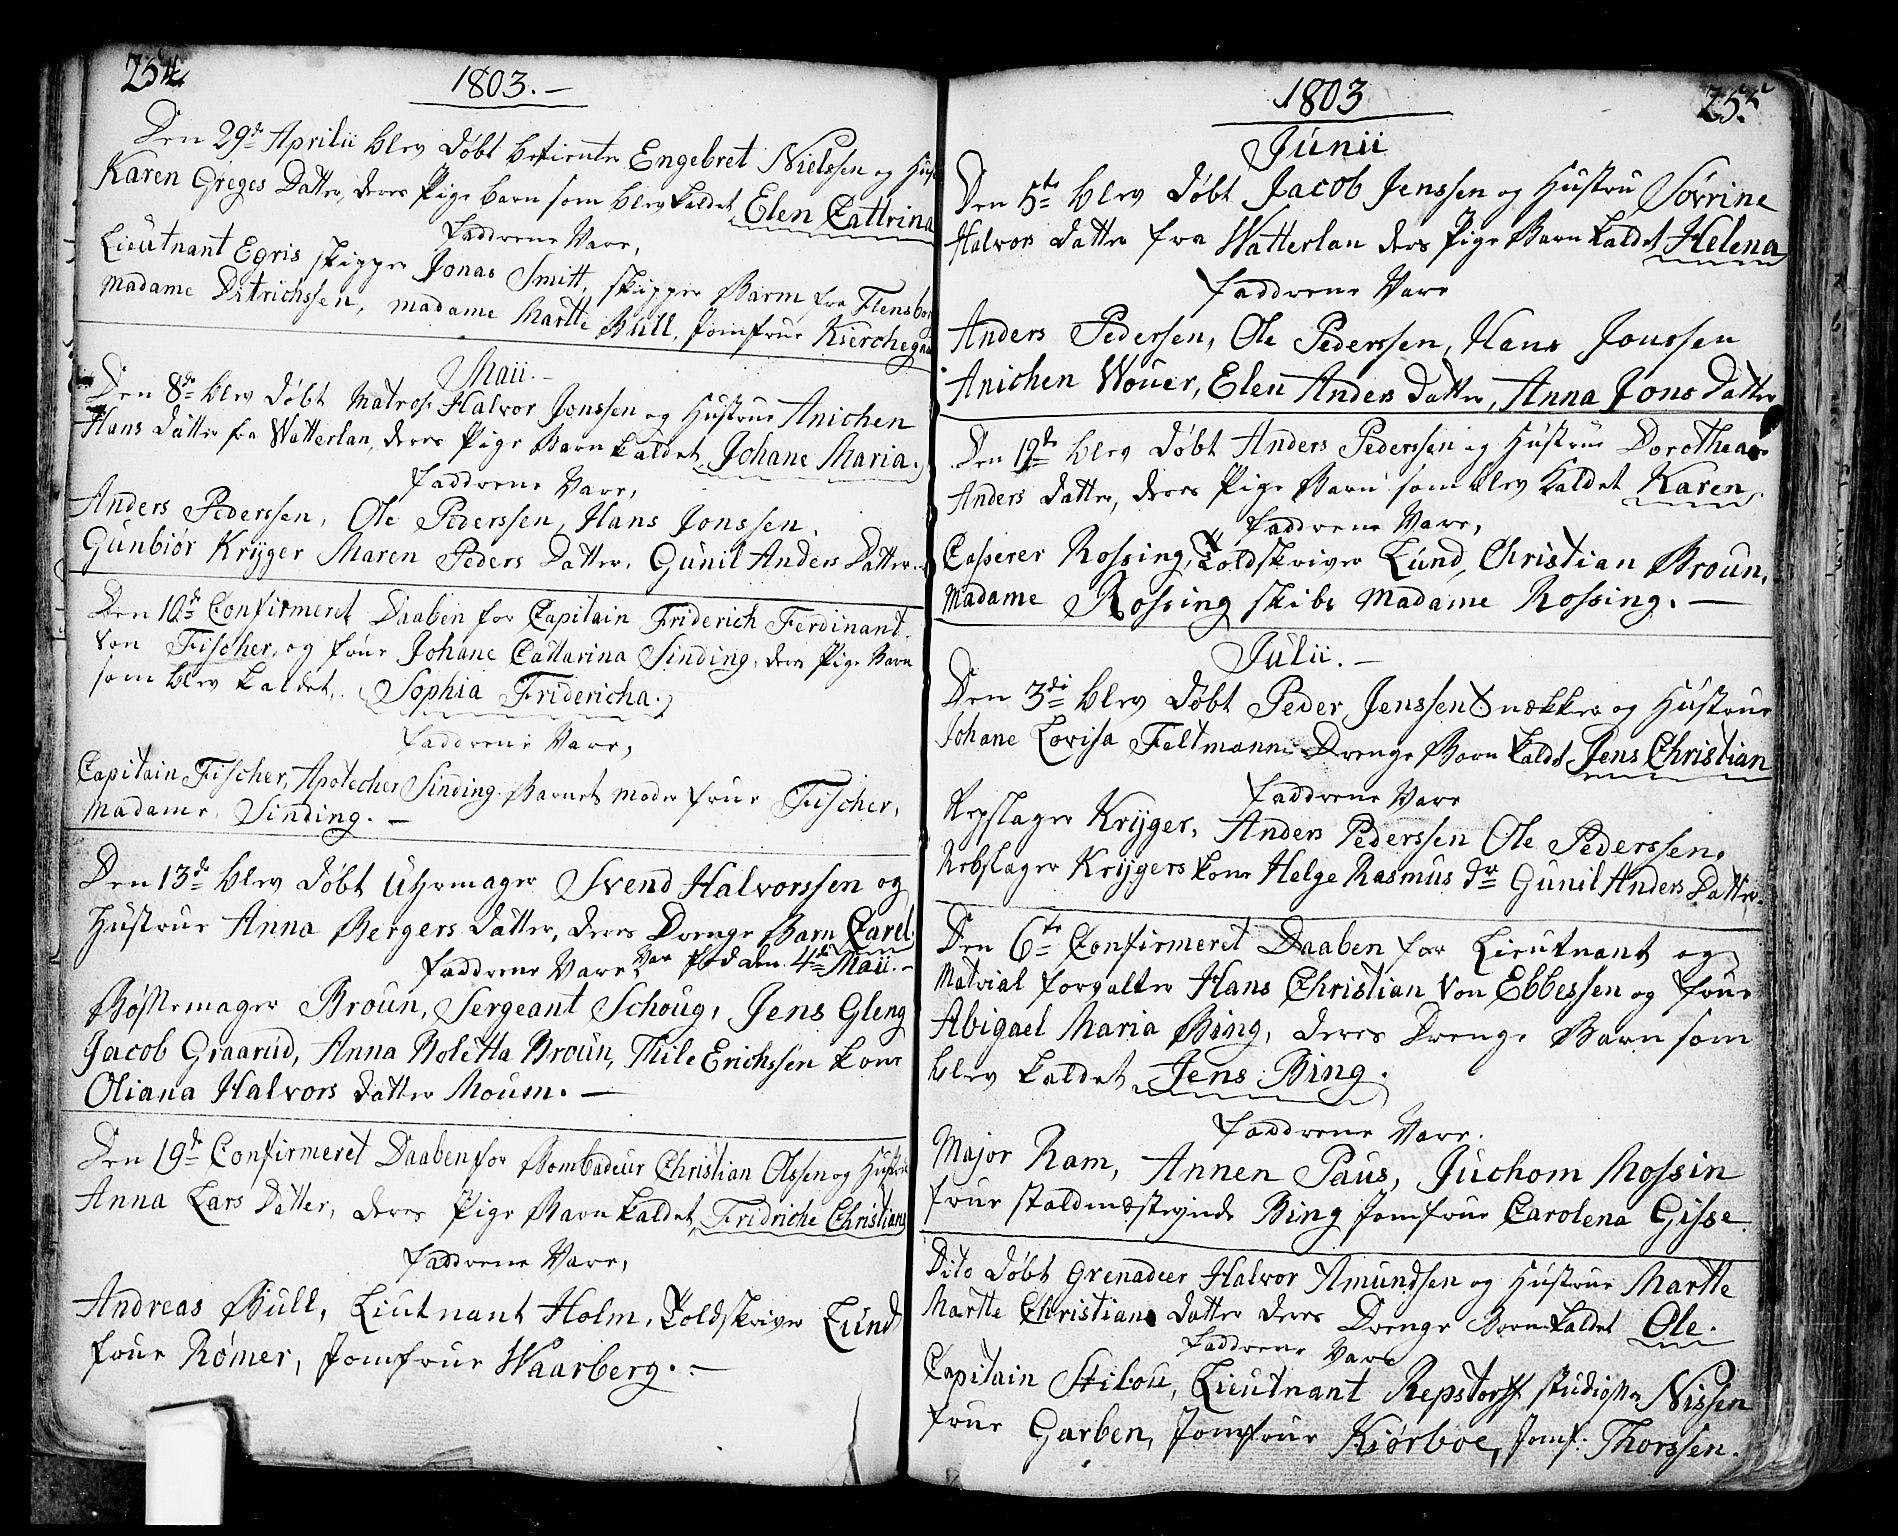 254
1803. —
Den 29de Aprilii blev Døbt betienter Engebret Nielssen og Hust
Karen Greges Datter, deres Pige barn som blev kaldet Elen Cattrina
Faddrene Vare,
Lieutnant Egris skipper Jonas Smitt, skipper Barm fra Flensborg
Madame Ditrichssen, madame Martte Bull, Jomfrue
Maii. —
Den 8de blev Døbt Matros Halvor Jonssen og Hustrue Anichen
Hans Datter fra Watterlan, deres Pige Barn kaldet Johane Maria.
Faddrene Vare,
Anders Pederssen, Ole Pederssen, Hans Jonssen,
Gunbiør Kryger Maren Peders Datter, Gunil Anders Datter. —
Den 10de Confirmeret Daaben for Capitain Friderich Ferdinant
von Fischer, og frue Johane Cattarina Sinding, deres Pige Barn
som blev kaldet, Sophia Fridericha.
Faddrene Vare,
Capitain Fischer, Apotecher Sinding. Barnets moder frue Fischer,
Madame Sinding. —
Den 13de blev Døbt Uhrmager Svend Halvorssen og
Hustrue Anna Bergers Datter, deres Drenge Barn Carel.
Faddrene Vare, var fød den 4de Maii. —
Bøssemager Broun, Sergeant Schoug, Jens Gleng
Jacob Graarud, Anna Roletta Broun, Thile Erichssen kone
Oliana Halvors Datter Moum. —
Den 19de Confirmeret Daaben for Bombadeur Christian Olssen og Hustrue
Anna Lars Datter, deres Pige Barn kaldet Fridriche Christians
Faddrene Vare,
Andreas Bull, Liutnant Holm, Toldskriver Lund
frue Rømer, Jomfrue Waarberg. —
255
1803
Junii
Den 5te blev Døbt Jacob Jenssen og Hustru Sørine
Halvors Datter fra Watterlan deres Pige Barn kaldet Helena
Faddrene Vare
Anders Pedersen, Ole Pederssen, Hans Jonssen
Anichen Wouer, Elen Anders Datter, Anna Jons Datter
Den 19de blev Døbt Anders Pederssen og Hustrue Dorothea
Anders Datter, deres Pige Barn som blev kaldet Karen
Faddrene Vare,
Casserer Rossing, Toldskriver Lund, Christian Broun,
Madame Rossing skibs Madame Rossing. —
Julii. —
Den 3di blev Døbt Peder Jenssen Snækker og Hustrue
Johane Lovisa Feltmann Drenge Barn kaldt Jens Christian
Faddrene Vare
Repslager Kryger, Anders Pederssen Ole Pederssen,
Rebslager Krygers kone Helge Rasmus Dr Gunil Anders Datter.
Den 6te Confirmeret Daaben for Lieutnant og
Matrial forvalter Hans Christian Von Ebbessen og frue
Abigael Maria Bing, deres Drenge Barn som
blev kaldet Jens Bing.
Faddrene Vare.
Major Ram, Annen Paus, Juchom Mossin
frue staldmæsterinde Bing Jomfrue Carolena Gisse
Dito Døbt Grenadeer Halvor Amundsen og Hustrue Martte
Martte Christians Datter deres Drenge Barn kaldet Ole.
Faddrene Vare
Capitain Stibolt, Lieutnant Repstorff Nissen
frue Garben, Jomfrue Kiørboe, Jomf: Thorssen.